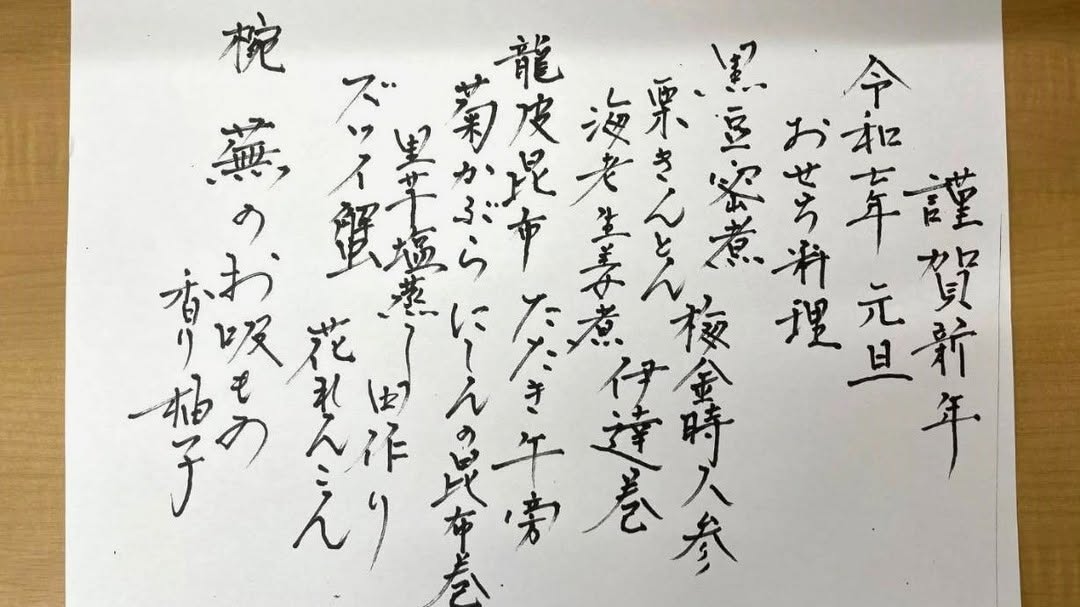 謹賀新年
令和七年 元旦
おせち料理
黒豆密煮 梅金時人参
栗きんとん
海老生姜煮 伊達巻
龍皮昆布 たたき午旁
菊かぶら にしんの昆布巻
里芋塩蒸し 田作り
ズワイ蟹 花れんこん
椀 蕪のお吸もの
香り柚子